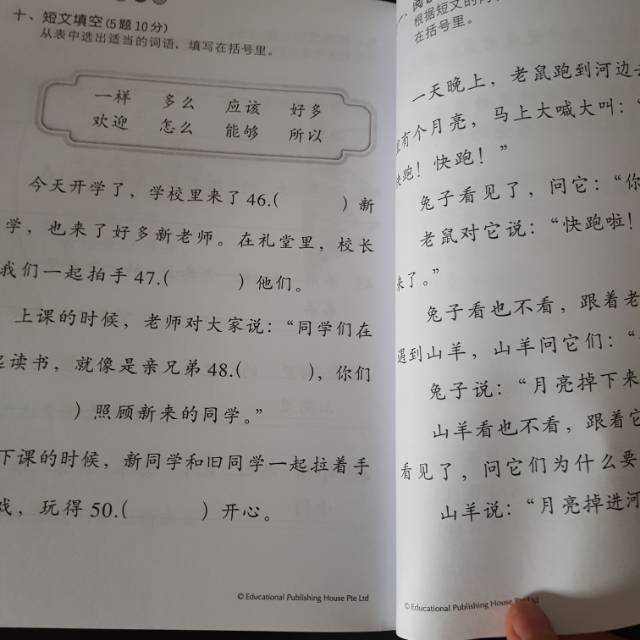 十、短文填空(5题10分)
从表中选出适当的词语，填写在括号里。
一样 多么 应该 好多
欢迎 怎么 能够 所以
今天开学了，学校里来了46.( )新
学，也来了好多新老师。在礼堂里，校长
我们一起拍手47.( )他们。
上课的时候，老师对大家说：“同学们在
读书，就像是亲兄弟48.( )，你们
)照顾新来的同学。”
下课的时候，新同学和旧同学一起拉着手
戏，玩得50.( )开心。
© Educational Publishing House Pte Ltd
根据短文的
在括号里。
一天晚上，老鼠跑到河边
有个月亮，马上大喊大叫：“
快跑！快跑！”
兔子看见了，问它：“你
老鼠对它说：“快跑啦！
来了。”
兔子看也不看，跟着老
遇到山羊，山羊问它们：“
兔子说：“月亮掉下来
山羊看也不看，跟着它
看见了，问它们为什么要
山羊说：“月亮掉进河
© Educational Publishing House Pte Ltd